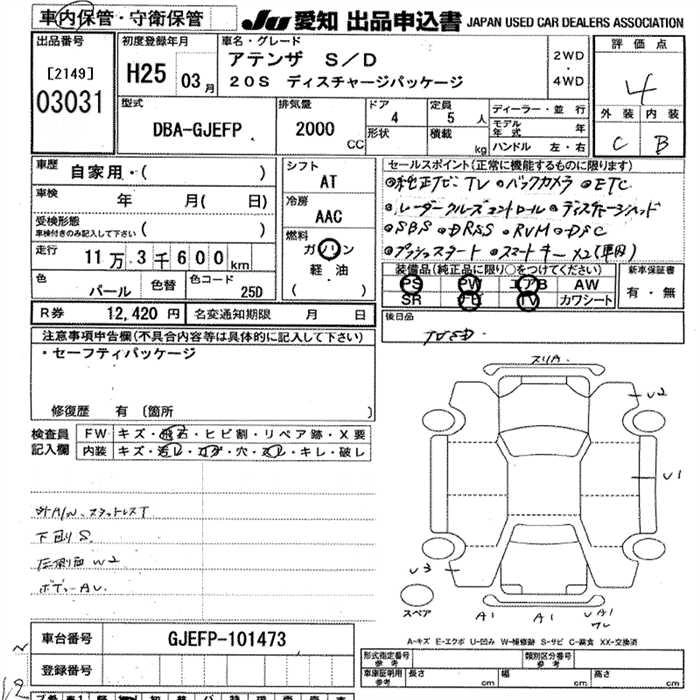 車内保管・守衛保管
JU 愛知 出品申込書 JAPAN USED CAR DEALERS ASSOCIATION
出品番号
[2149]
03031
初度登録年月
H25 03月
車名・グレード
アテンザ S/D
20S ディスチャージパッケージ
2WD
・
4WD
評価点
4
外装 内装
C B
型式
DBA-GJEFP
排気量
2000 CC
ドア
4
形状
定員
5 人
積載
kg
ディーラー・並行
モデル年式 年
ハンドル 左・右
車歴 自家用・( )
車検 年 月( 日)
受検形態
車検付きのみ記入して下さい ( )
走行 11万3千600km
色 パール 色替 色コード 25D
シフト
AT
冷房
AAC
燃料
ガソリン
軽油
( )
セールスポイント(正常に機能するものに限ります)
◎純正ナビ TV ◎バックカメラ ◎ETC
◎レーダークルーズコントロール ◎ディスチャージヘッド
◎SBS ◎DRSS ◎RVM ◎DSC
◎プッシュスタート ◎スマートキー×2(車内)
装備品(純正品に限り○をつけてください) 新車保証書
PS PW エアB AW 有・無
SR ナビ TV カワシート
R券 12,420円 名変通知期限 月 日
後日品
注意事項申告欄(不具合内容等は具体的に記入して下さい)
・セーフティパッケージ
修復歴 有 [箇所 ]
検査員記入欄
FW キズ・飛石・ヒビ割・リペア跡・X要
内装 キズ・汚レ・コゲ・穴・スレ・キレ・破レ
外A/W、スタッドレスT
下回り S
左側面 W2
ボディー AU
スリA
U2
U1
U3
スペア
A1 A1 UA1
A-キズ E-エクボ U-凹み W-補修跡 S-サビ C-腐食 XX-交換済
車台番号 GJEFP-101473
登録番号
形式指定番号 参考 類別区分番号 参考
車庫証明用 参考 長さ cm 幅 cm 高さ cm